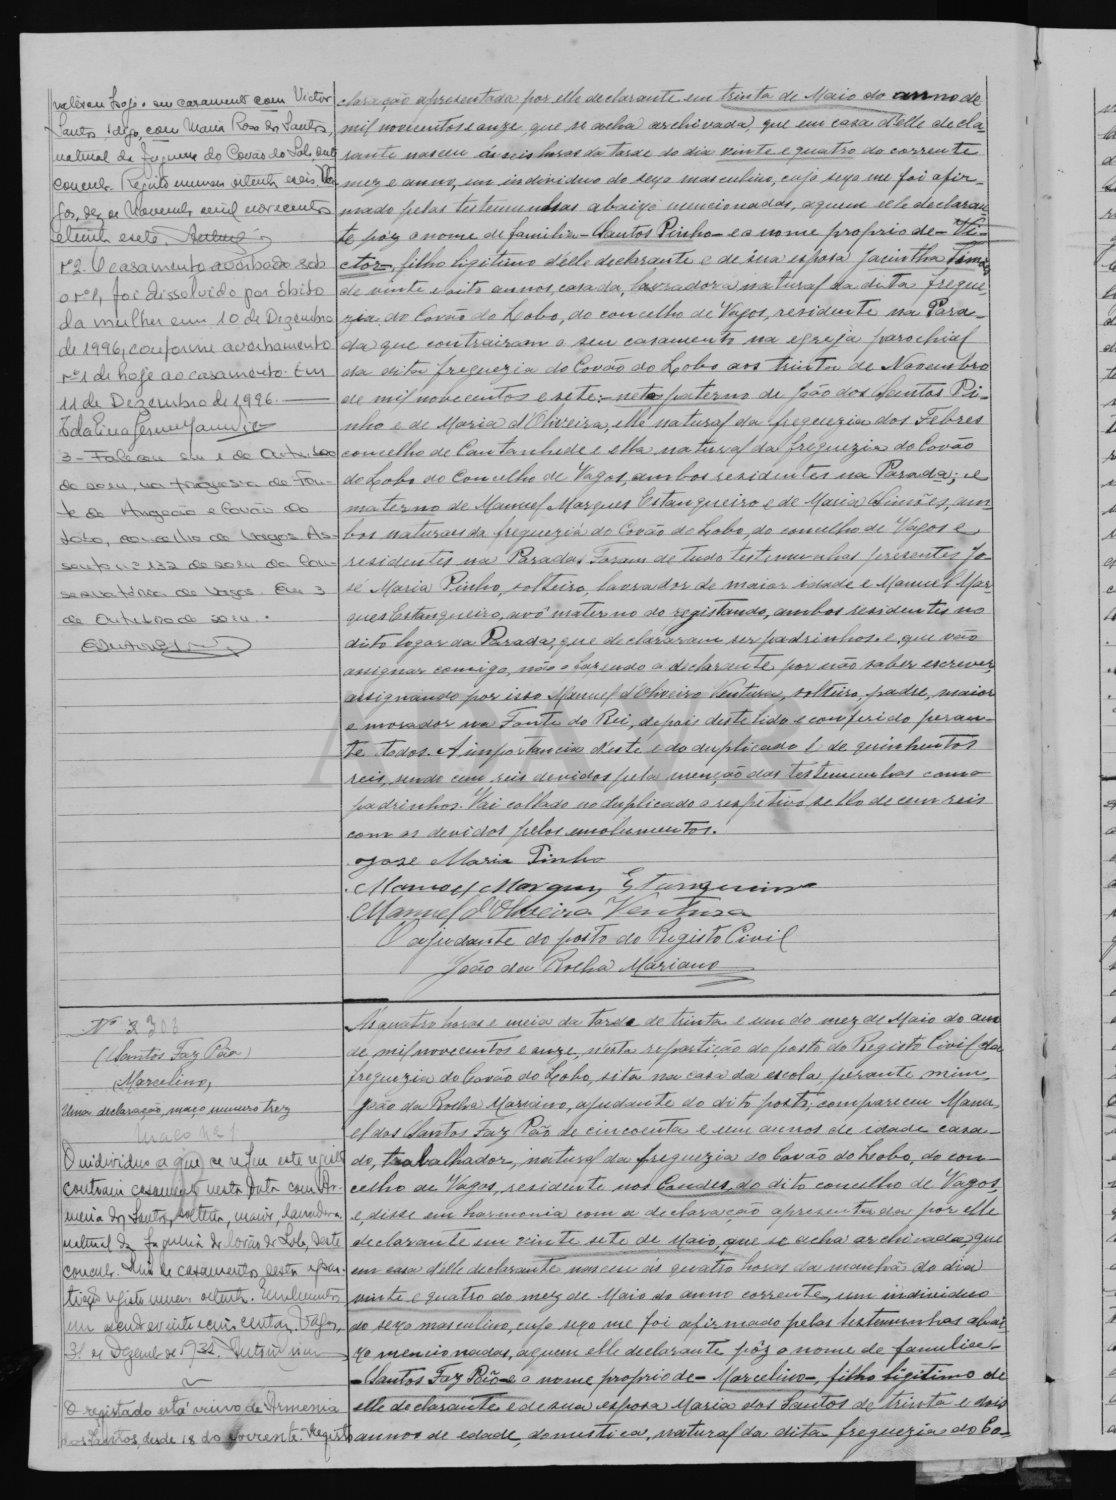 valeram hoje em casamento com Victor
Santos, digo, com Maria Rosa dos Santos,
natural da freguesia do Covão do Lobo, deste
concelho. Registo numero oitenta e seis. Va-
gos, dez de Novembro de mil novecentos
e trinta e sete.
Nº 2. O casamento averbado sob
o nº 1, foi dissolvido por óbito
da mulher em 10 de Dezembro
de 1996, conforme averbamento
nº 1 de hoje ao casamento. Em
11 de Dezembro de 1996.
3 - Faleceu em 1 de Outubro
de 2011, na freguesia de Fon-
te de Angeão e Covão do
Lobo, concelho de Vagos. As-
sento nº 132 de 2011 da Con-
servatória de Vagos. Em 3
de Outubro de 2011.
claração apresentada por elle declarante em trinta de Maio do anno de
mil novecentos e onze, que se acha archivada, que em casa d'elle decla-
rante nasceu ás seis horas da tarde do dia vinte e quatro do corrente
mez e anno, um individuo do sexo masculino, cujo sexo me foi afir-
mado pelas testemunhas abaixo mencionadas, a quem elle declaran-
te poz o nome de familia - Santos Pinho - e o nome proprio de - Vi-
ctor -, filho ligitimo d'elle declarante e de sua esposa Jacintha Simões,
de vinte e oito annos, casada, lavradora natural da dita fregue-
zia do Covão do Lobo, do concelho de Vagos, residente na Para-
da que contrairam o seu casamento na egreja parochial
da dita freguezia do Covão do Lobo aos trinta de Novembro
de mil novecentos e sete; neto paterno de João dos Santos Pi-
nho e de Maria d'Oliveira, elle natural da freguezia dos Febres
concelho de Cantanhede e ella natural da freguezia do Covão
do Lobo do Concelho de Vagos, ambos residentes na Parada; e
materno de Manuel Marques Estangueiro e de Maria Simões, am-
bos naturaes da freguezia do Covão do Lobo, do concelho de Vagos e
residentes na Parada. Foram de tudo testemunhas presentes Jo-
sé Maria Pinho, solteiro, lavrador de maior idade e Manuel Mar-
ques Estangueiro, avô materno do registando, ambos residentes no
dito logar da Parada, que declararam ser padrinhos e que vão
assignar comigo, não o fazendo o declarante por não saber escrever,
assignando por isso Manuel d'Oliveira Ventura, solteiro, padre, maior
e morador na Fonte do Rei, depois deste lido e conferido peran-
te todos. A importancia deste e do duplicado é de quinhentos
reis, sendo cem reis devidos pela menção das testemunhas como
padrinhos. Vai collado no duplicado o respetivo sello de cem reis
com os devidos pelos emolumentos.
Jose Maria Pinho
Manoel Marques Estangueiro
Manuel d'Oliveira Ventura
O ajudante do posto do Registo Civil
João da Rocha Mariano
Nº 308
(Santos Faz Pão)
Marcelino,
Uma declaração, maço numero trez
Maço nº 1
O individuo a que se refere este registo
contraiu casamento nesta data com Ar-
menia dos Santos, solteira, maior, lavradora
natural da freguesia do Covão do Lobo, deste
concelho.
31 de Dezembro de 1932.
O registado está viuvo de Armenia
dos Santos desde 18 do corrente. Registo
Ás quatro horas e meia da tarde de trinta e um do mez de Maio do ano
de mil novecentos e onze, nesta repartição do posto do Registo Civil da
freguezia do Covão do Lobo, sita na casa da escola, perante mim,
João da Rocha Mariano, ajudante do dito posto, compareceu Manu-
el dos Santos Faz Pão de cincoenta e um annos de idade casa-
do, trabalhador, natural da freguezia do Covão do Lobo, do con-
celho de Vagos, residente nos Candes, do dito concelho de Vagos,
e, disse em harmonia com a declaração apresentada por elle
declarante em vinte sete de Maio, que se acha archivada, que
em casa d'elle declarante nasceu ás quatro horas da manhã do dia
vinte e quatro do mez de Maio do anno corrente, um individuo
do sexo masculino, cujo sexo me foi afirmado pelas testemunhas abai-
xo mencionadas, a quem elle declarante pôz o nome de familia -
- Santos Faz Pão - e o nome proprio de - Marcelino -, filho ligitimo de
elle declarante e de sua esposa Maria dos Santos de trinta e dois
annos de edade, domestica, natural da dita freguezia do Co-